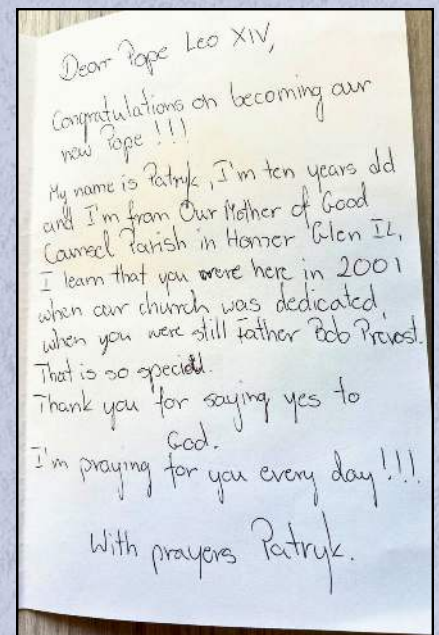 Dear Pope Leo XIV,
Congratulations on becoming our
new Pope !!!
My name is Patryk, I'm ten years old
and I'm from Our Mother of Good
Counsel Parish in Homer Glen IL,
I learn that you were here in 2001
when our church was dedicated,
when you were still Father Bob Prevost.
That is so special.
Thank you for saying yes to
God.
I'm praying for you every day!!!
With prayers Patryk.